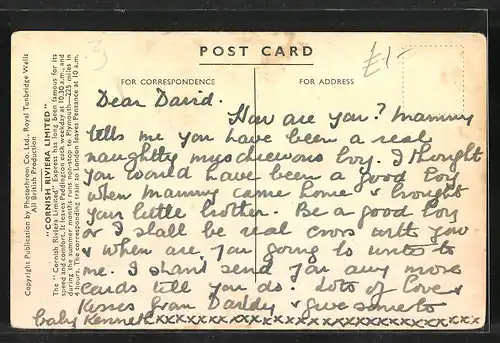 POST CARD
£1-
3
FOR CORRESPONDENCE
FOR ADDRESS
Dear David.
How are you? Mammy
tells me you have been a real
naughty mischievous boy. I thought
you would have been a good boy
when Mammy came home & brought
your little brother. Be a good boy
or I shall be real cross with you
& when are you going to write to
me. I shan't send you any more
cards till you do. Lots of love &
Kisses from Daddy & give some to
baby Kenneth xxxxxxxxxxxxxxxxxxxxxxxx
"CORNISH RIVIERA LIMITED"
The "Cornish Riviera Limited" Express has long been famous for its
speed and comfort. It leaves Paddington each weekday at 10.30 a.m., and
during the summer months runs non-stop to Plymouth—225 miles in
4 hours. The corresponding train to London leaves Penzance at 10 a.m.
Copyright Publication by Photochrom Co. Ltd., Royal Tunbridge Wells
All British Production